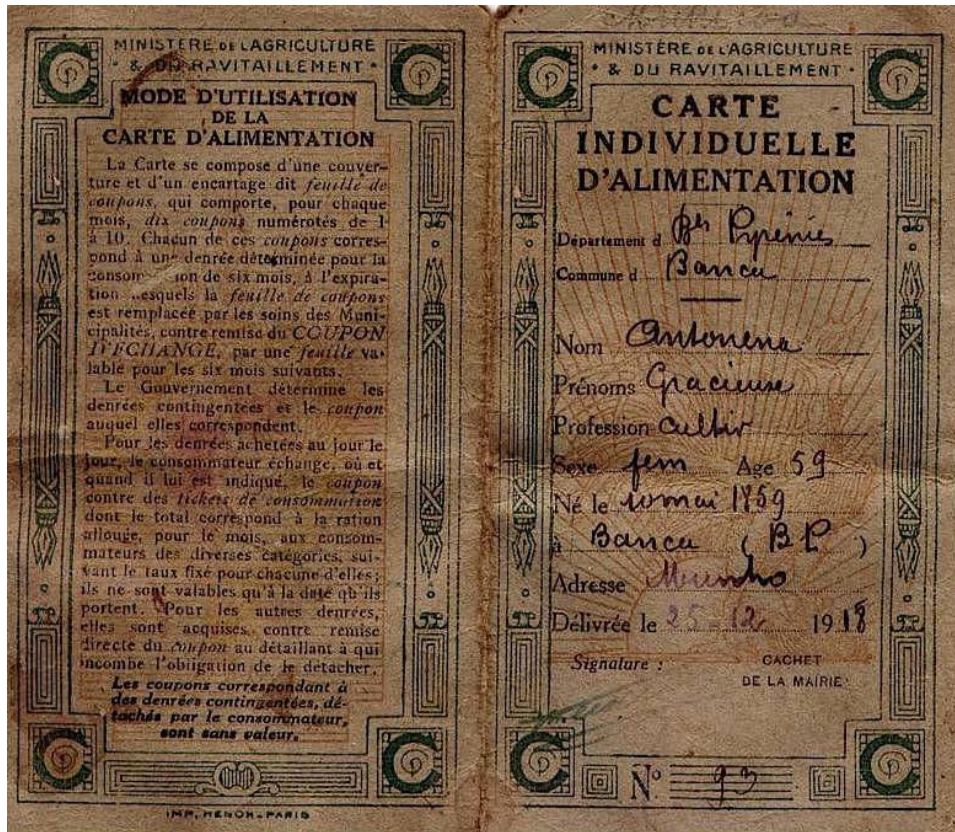 MINISTÈRE DE L'AGRICULTURE
& DU RAVITAILLEMENT
MODE D'UTILISATION
DE LA
CARTE D'ALIMENTATION
La Carte se compose d'une couver-
ture et d'un encartage dit feuille de
coupons, qui comporte, pour chaque
mois, dix coupons numérotés de 1
à 10. Chacun de ces coupons corres-
pond à une denrée déterminée pour la
consom tion de six mois, à l'expira-
tion desquels la feuille de coupons
est remplacée par les soins des Muni-
cipalités, contre remise du COUPON
D'ÉCHANGE, par une feuille va-
lable pour les six mois suivants.
Le Gouvernement détermine les
denrées contingentées et le coupon
auquel elles correspondent.
Pour les denrées achetées au jour le
jour, le consommateur échange, où et
quand il lui est indiqué, le coupon
contre des tickets de consommation
dont le total correspond à la ration
allouée, pour le mois, aux consom-
mateurs des diverses catégories, sui-
vant le taux fixé pour chacune d'elles;
ils ne sont valables qu'à la date qu'ils
portent. Pour les autres denrées,
elles sont acquises contre remise
directe du coupon au détaillant à qui
incombe l'obligation de le détacher.
Les coupons correspondant à
des denrées contingentées, dé-
tachés par le consommateur,
sont sans valeur.
IMP. HENON_PARIS
MINISTÈRE DE L'AGRICULTURE
& DU RAVITAILLEMENT
CARTE
INDIVIDUELLE
D'ALIMENTATION
Département d Bses Pyrénées
Commune d Banca
Nom Antonena
Prénoms Gracieuse
Profession Cultiv
Sexe fem Age 59
Né le 10 mai 1859
à Banca (B P)
Adresse
Délivrée le 25-12 1918
Signature :
CACHET
DE LA MAIRIE
N° 93